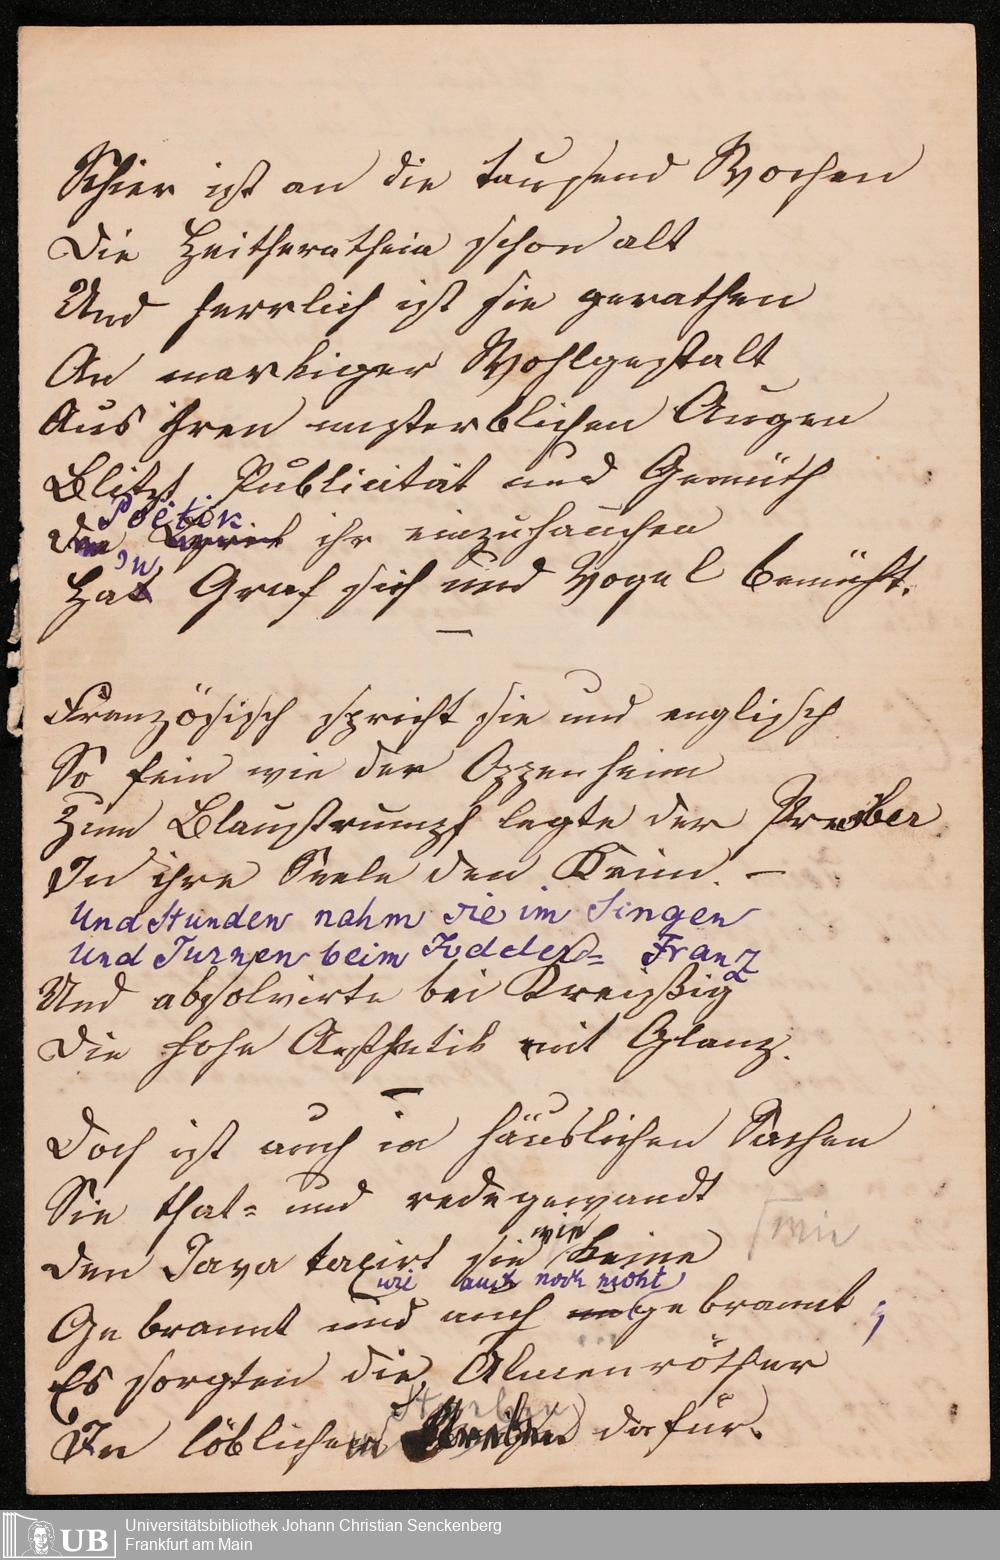 Schier ist an die tausend Wochen
Die Heitherathein schon alt
Und herrlich ist sie gerathen
An markiger Wohlgestalt
Aus ihren unsterblichen Augen
Blitzt Publicität und Gemüth
Poëtik
Die Lyrik ihr einzuhauchen
Hat Graf sich und Vogel bemüht.
Französisch spricht sie und englisch
So fein wie der Oppenheim
Zum Blaustrumpf legte der Presber
In ihre Seele den Keim. –
Und Stunden nahm sie im Singen
Und Turnen beim Fodder- Franz
Und absolvirte bei Kreißig
Die hohe Aesthetik mit Glanz.
Doch ist auch in häuslichen Sachen
Sie that- und redegewandt
wie
Den Java taxirt sie keine
wie auch noch nicht
Gebrannt und auch ungebrannt;
Es sorgten die Almenröther
Streben
In löblichem Streben dafür.
UB
Universitätsbibliothek Johann Christian Senckenberg
Frankfurt am Main